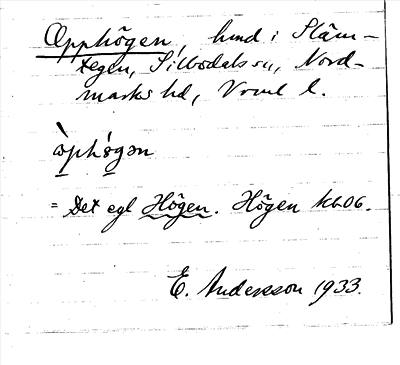 Opphögen, hmd i Släm-
tegen, Sillbodals sn, Nord-
marks hd, Vrml l.
òphø̀gən
= Det egl Högen. Högen kb06.
E. Andersson 1933.